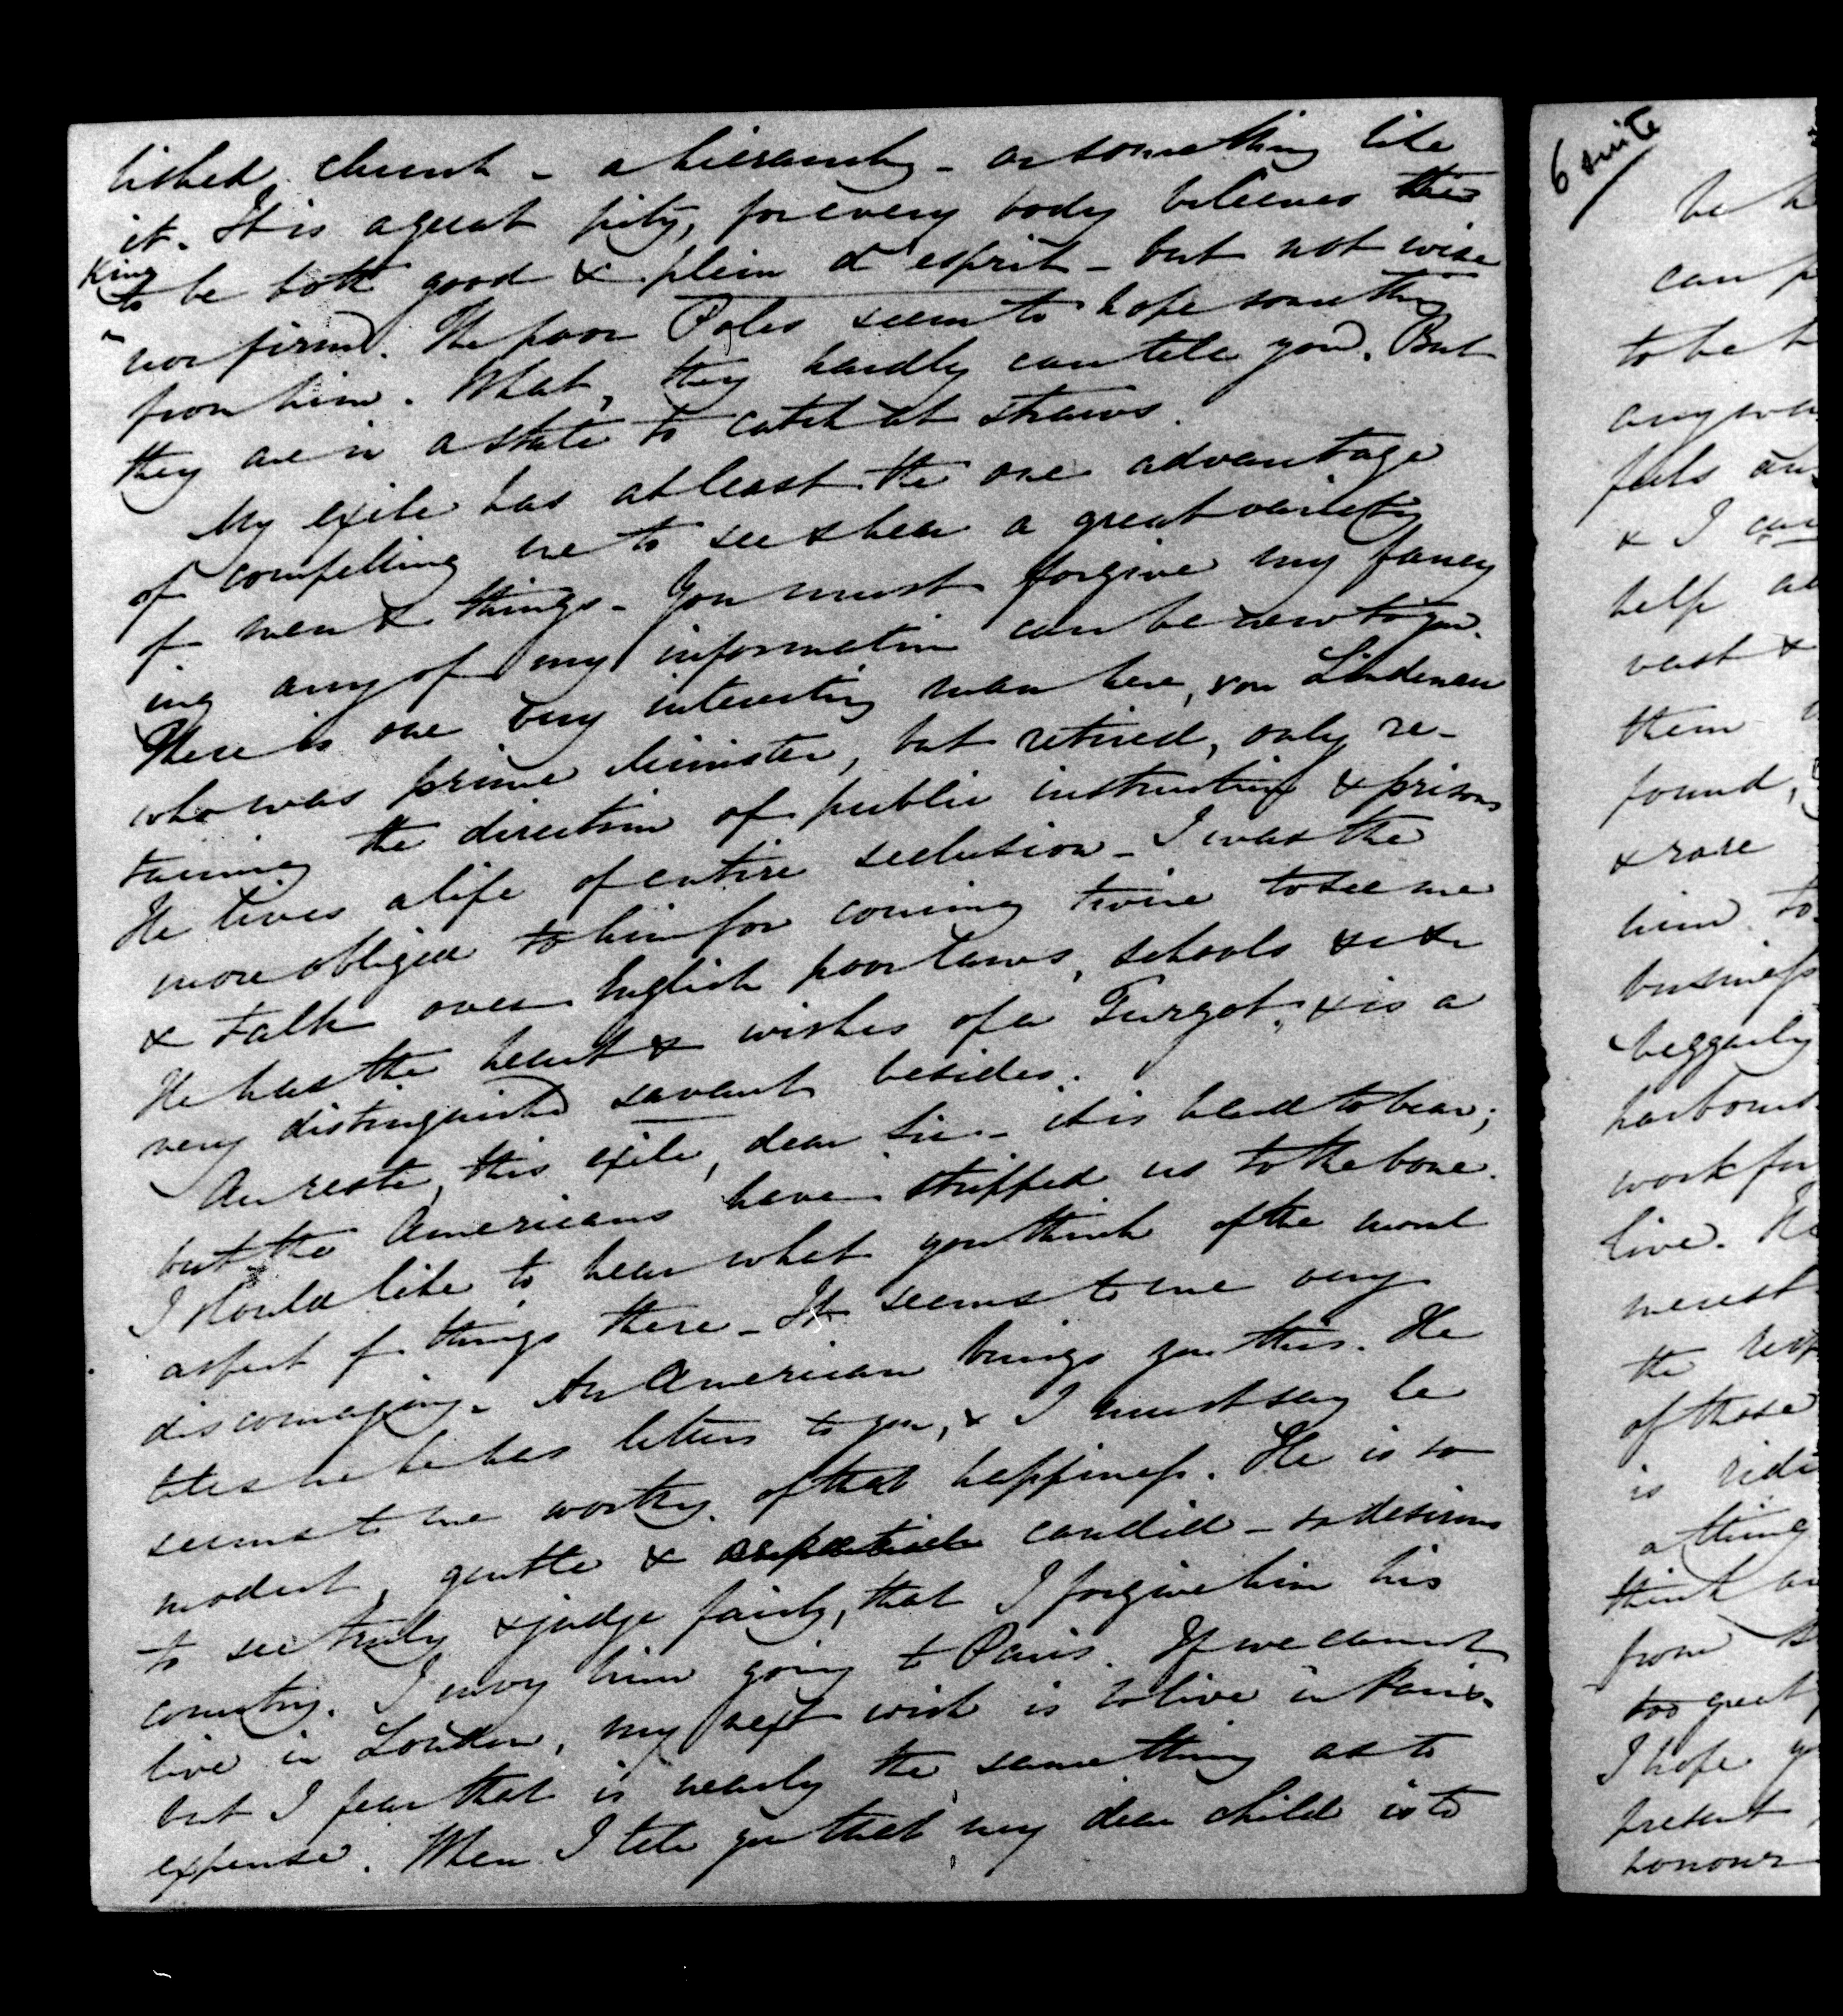 lished church - a hierarchy - or something like
it. It is a great pity, for every body believes this
King
to be both good & plein d'esprit - but not wise
nor firm. The poor Poles seem to hope something
from him. What, they hardly can tell you. But
they are in a state to catch at straws.
My exile has at least the one advantage
of compelling me to see & hear a great variety
of men & things - You must forgive my fancy
ing any of my information can be new to you.
There is one very interesting man here, von Lindenau
who was prime Minister, but retired, only re-
taining the direction of public instruction & prisons
He lives a life of entire seclusion - I was the
more obliged to him for coming twice to see me
& talk over English poor laws, schools &c &c
He has the heart & wishes of a Turgot, & is a
very distinguished savant besides.
Au reste, this exile, dear Sir - it is hard to bear;
but the Americans have stripped us to the bone.
I should like to hear what you think of the moral
aspect of things there - It seems to me very
discouraging. An American brings you this. He
tells me he has letters to you, & I must say he
seems to me worthy of that happiness. He is so
modest, gentle & candid - so desirous
to see truly & judge fairly, that I forgive him his
country. I envy him going to Paris. If we cannot
live in London, my next wish is to live in Paris -
but I fear that is nearly the same thing as to
expense. When I tell you that my dear child is to
6 suite
be h
can p
to be h
any
feels an
& I can
help
vast &
them
found,
& rare
him to
business
beggarly
harbours
work for
live. He
merest
the resp
of those
is ridi
a thing
think
from
too great
I hope y
present
honour